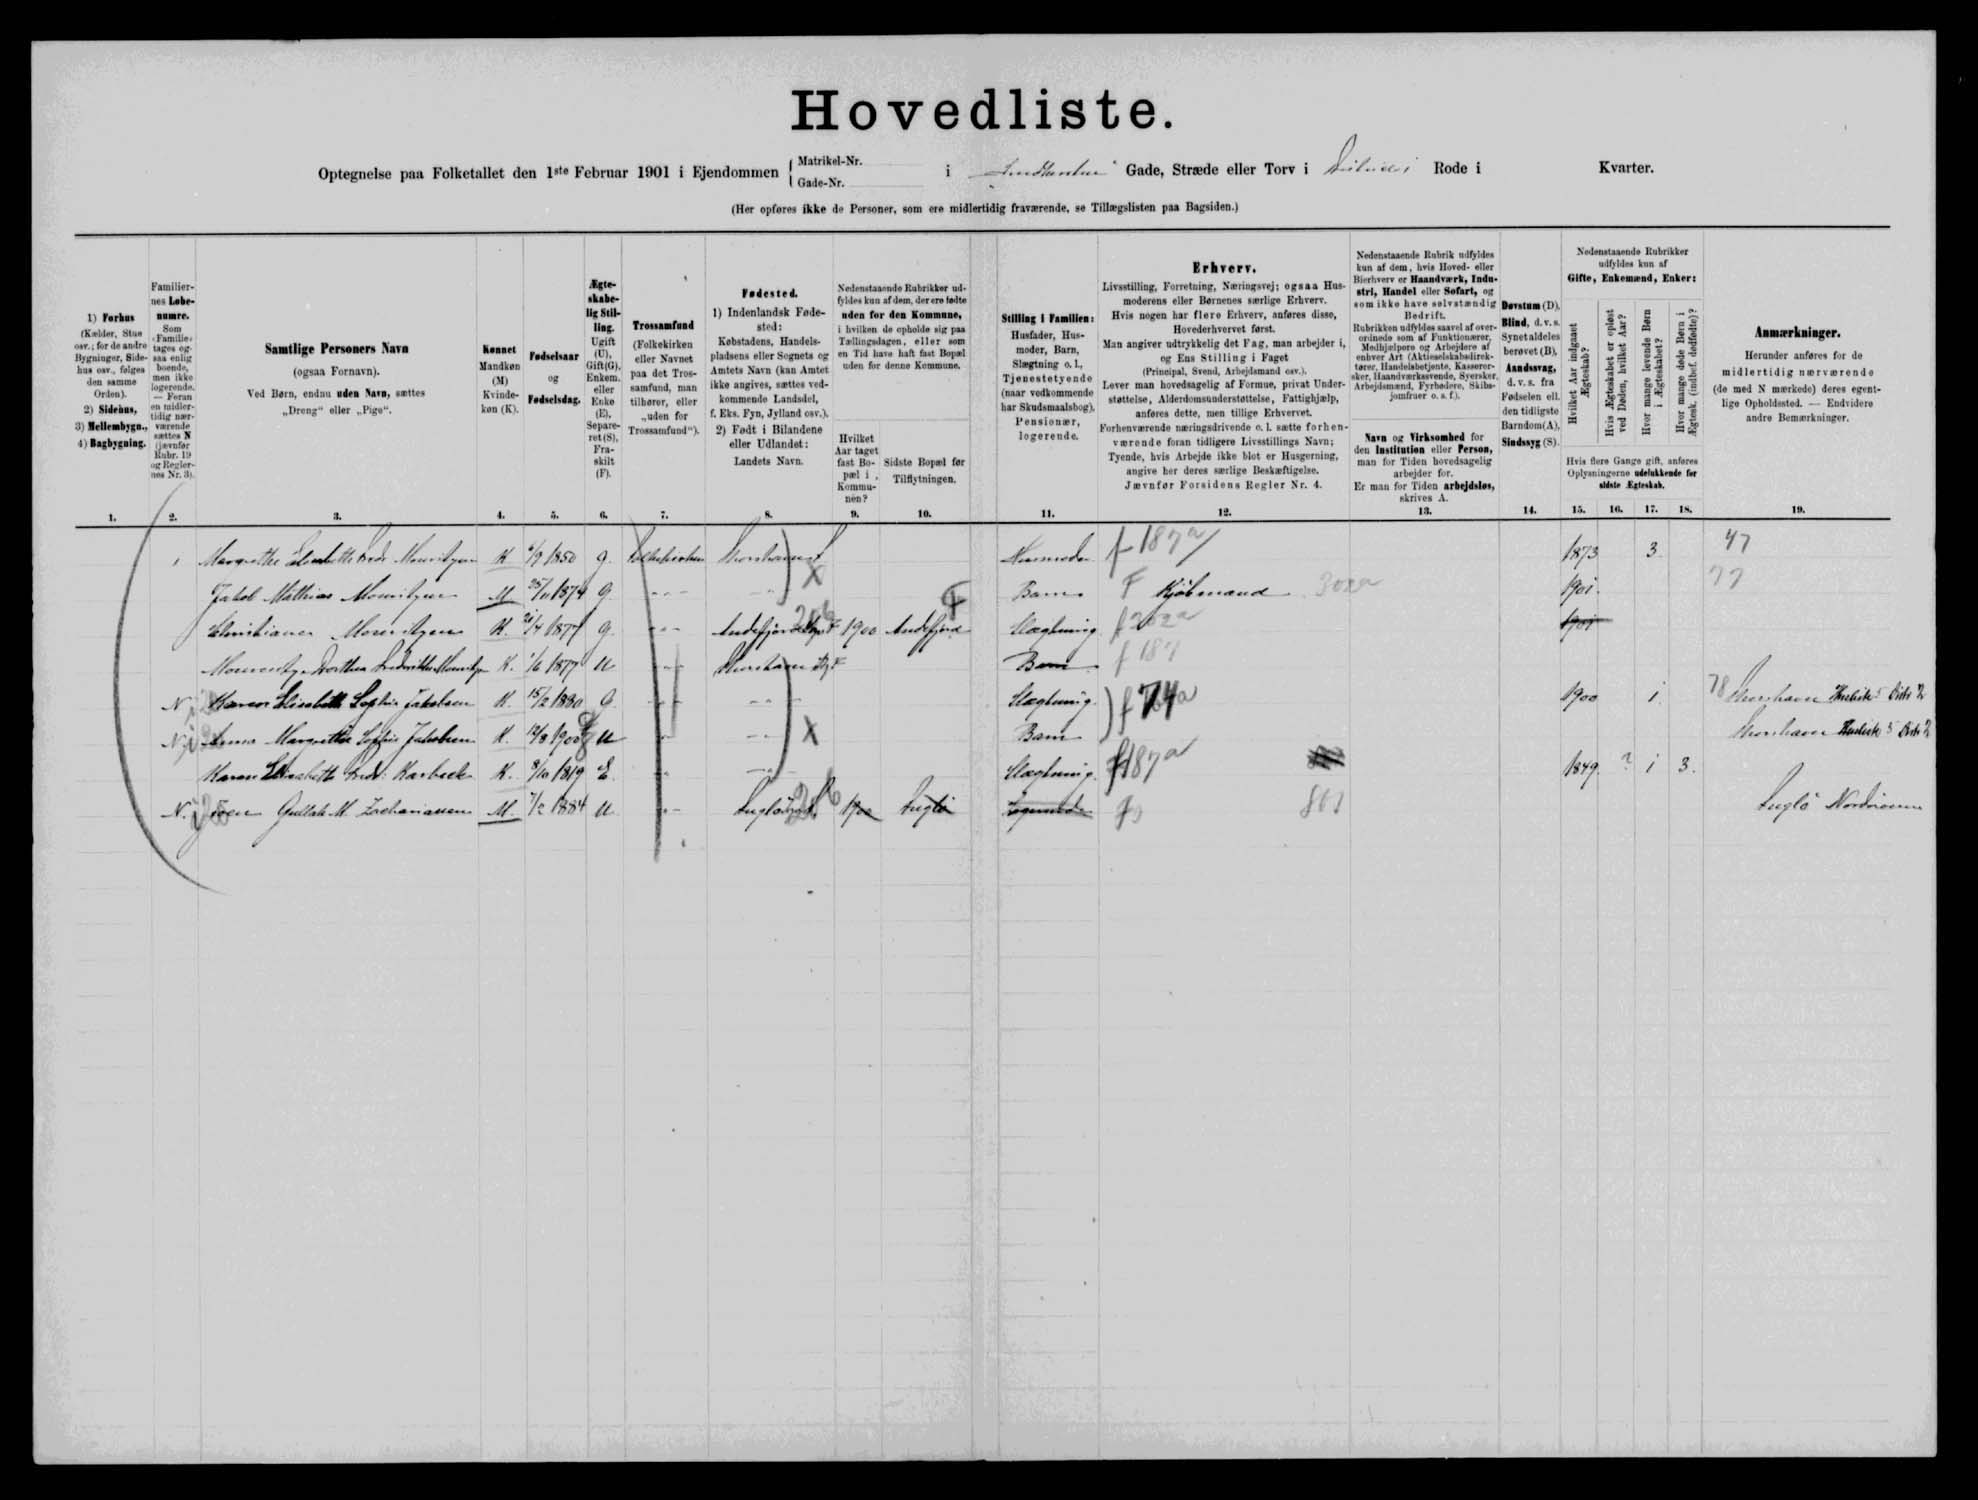 Hovedliste.
Optegnelse paa Folketallet den 1ste Februar 1901 i Ejendommen { Matrikel-Nr. Gade-Nr. i Gade, Stræde eller Torv i Rode i Kvarter.
(Her opføres ikke de Personer, som ere midlertidig fraværende, se Tillægslisten paa Bagsiden.)
1) Forhus (Kælder, Stue osv.; for de andre Bygninger, Sidehus osv., følges den samme Orden). 2) Sidehus, 3) Mellembygn., 4) Bagbygning.
Familiernes Løbenumre. Som »Familie« tages ogsaa enlig boende, men ikke logerende. — Foran en midlertidig nærværende sættes N (jævnfør Rubr. 19 og Reglernes Nr. 3).
Samtlige Personers Navn (ogsaa Fornavn). Ved Børn, endnu uden Navn, sættes „Dreng“ eller „Pige“.
Kønnet Mandkøn (M) Kvindekøn (K).
Fødselsaar og Fødselsdag.
Ægteskabelig Stilling. Ugift (U), Gift (G), Enkem. eller Enke (E), Separeret (S), Fraskilt (F).
Trossamfund (Folkekirken eller Navnet paa det Trossamfund, man tilhører, eller „uden for Trossamfund“).
Fødested. 1) Indenlandsk Fødested: Købstadens, Handelspladsens eller Sognets og Amtets Navn (kan Amtet ikke angives, sættes vedkommende Landsdel, f. Eks. Fyn, Jylland osv.). 2) Født i Bilandene eller Udlandet: Landets Navn.
Nedenstaaende Rubrikker udfyldes kun af dem, der ere fødte uden for den Kommune, i hvilken de opholde sig paa Tællingsdagen, eller som en Tid have haft fast Bopæl uden for denne Kommune.
Hvilket Aar taget fast Bopæl i Kommunen?
Sidste Bopæl før Tilflytningen.
Stilling i Familien: Husfader, Husmoder, Barn, Slægtning o. l., Tjenestetyende (naar vedkommende har Skudsmaalsbog), Pensionær, logerende.
Erhverv. Livsstilling, Forretning, Næringsvej; ogsaa Husmoderens eller Børnenes særlige Erhverv. Hvis nogen har flere Erhverv, anføres disse, Hovederhvervet først. Man angiver udtrykkelig det Fag, man arbejder i, og Ens Stilling i Faget (Principal, Svend, Arbejdsmand osv.). Lever man hovedsagelig af Formue, privat Understøttelse, Alderdomsunderstøttelse, Fattighjælp, anføres dette, men tillige Erhvervet. Forhenværende næringsdrivende o. l. sætte forhenværende foran tidligere Livsstillings Navn; Tyende, hvis Arbejde ikke blot er Husgerning, angive her deres særlige Beskæftigelse. Jævnfør Forsidens Regler Nr. 4.
Nedenstaaende Rubrik udfyldes kun af dem, hvis Hoved- eller Bierhverv er Haandværk, Industri, Handel eller Søfart, og som ikke have selvstændig Bedrift. Rubrikken udfyldes saavel af overordnede som af Funktionærer, Medhjælpere og Arbejdere af enhver Art (Aktieselskabsdirektører, Handelsbetjente, Kasserersker, Haandværkssvende, Syersker, Arbejdsmænd, Fyrbødere, Skibsjomfruer o. s. f.).
Navn og Virksomhed for den Institution eller Person, man for Tiden hovedsagelig arbejder for. Er man for Tiden arbejdsløs, skrives A.
Døvstum (D), Blind, d. v. s. Synet aldeles berøvet (B), Aandssvag, d. v. s. fra Fødselen ell. den tidligste Barndom (A), Sindssyg (S).
Nedenstaaende Rubrikker udfyldes kun af Gifte, Enkemænd, Enker:
Hvilket Aar indgaaet Ægteskab?
Hvis Ægteskabet er opløst ved Døden, hvilket Aar?
Hvor mange levende Børn i Ægteskabet?
Hvor mange døde Børn i Ægtesk. (indbef. dødfødte)?
Hvis flere Gange gift, anføres Oplysningerne udelukkende for sidste Ægteskab.
Anmærkninger. Herunder anføres for de midlertidig nærværende (de med N mærkede) deres egentlige Opholdssted. — Endvidere andre Bemærkninger.
1. 2. 3. 4. 5. 6. 7. 8. 9. 10. 11. 12. 13. 14. 15. 16. 17. 18. 19.
1 Margrethe Elisabeth Mouritzen K 6/9 1850 G. Folkekirken Thorshavn Husmoder f 187a 1873 3 47
Jakob Mathias Mouritzen M 25/11 1874 G Barn F Kjøbmand 302a 1901. 77
Christiane Mouritzen K. 21/4 1877 G 1900 Andefjord Slægtning f 302a 1901
Dorthea Mouritzen K. 1/6 1877 U Thorshavn Barn f 187
N Karen Elisabeth Sophie Jakobsen K. 15/2 1880 G Slægtning. f 74a 1900 1 78 Thorshavn
N Anna Margrethe Sophie Jakobsen K. 1900 U Barn Thorshavn
Karen Elisabeth Karbech K. 8/10 1819 E. Slægtning. f 187a 1849. ? 1 3.
N. Zachariassen M. 7/2 1884 U Fuglø 1900 Fuglø 801 Fuglø Norderøerne